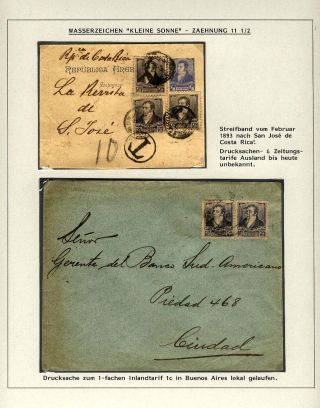 WASSERZEICHEN "KLEINE SONNE" - ZAEHNUNG 11 1/2
Rp.ca de Costa Rica
REPUBLICA ARGE
La Revista
de
S. José
10
T
Streifband vom Februar
1893 nach San José de
Costa Rica'.
Drucksachen- & Zeitungs-
tarife Ausland bis heute
unbekannt.
Señor
Gerente del Banco Sud-Americano
Piedad 468
Ciudad
Drucksache zum 1-fachen Inlandtarif 1c in Buenos Aires lokal gelaufen.